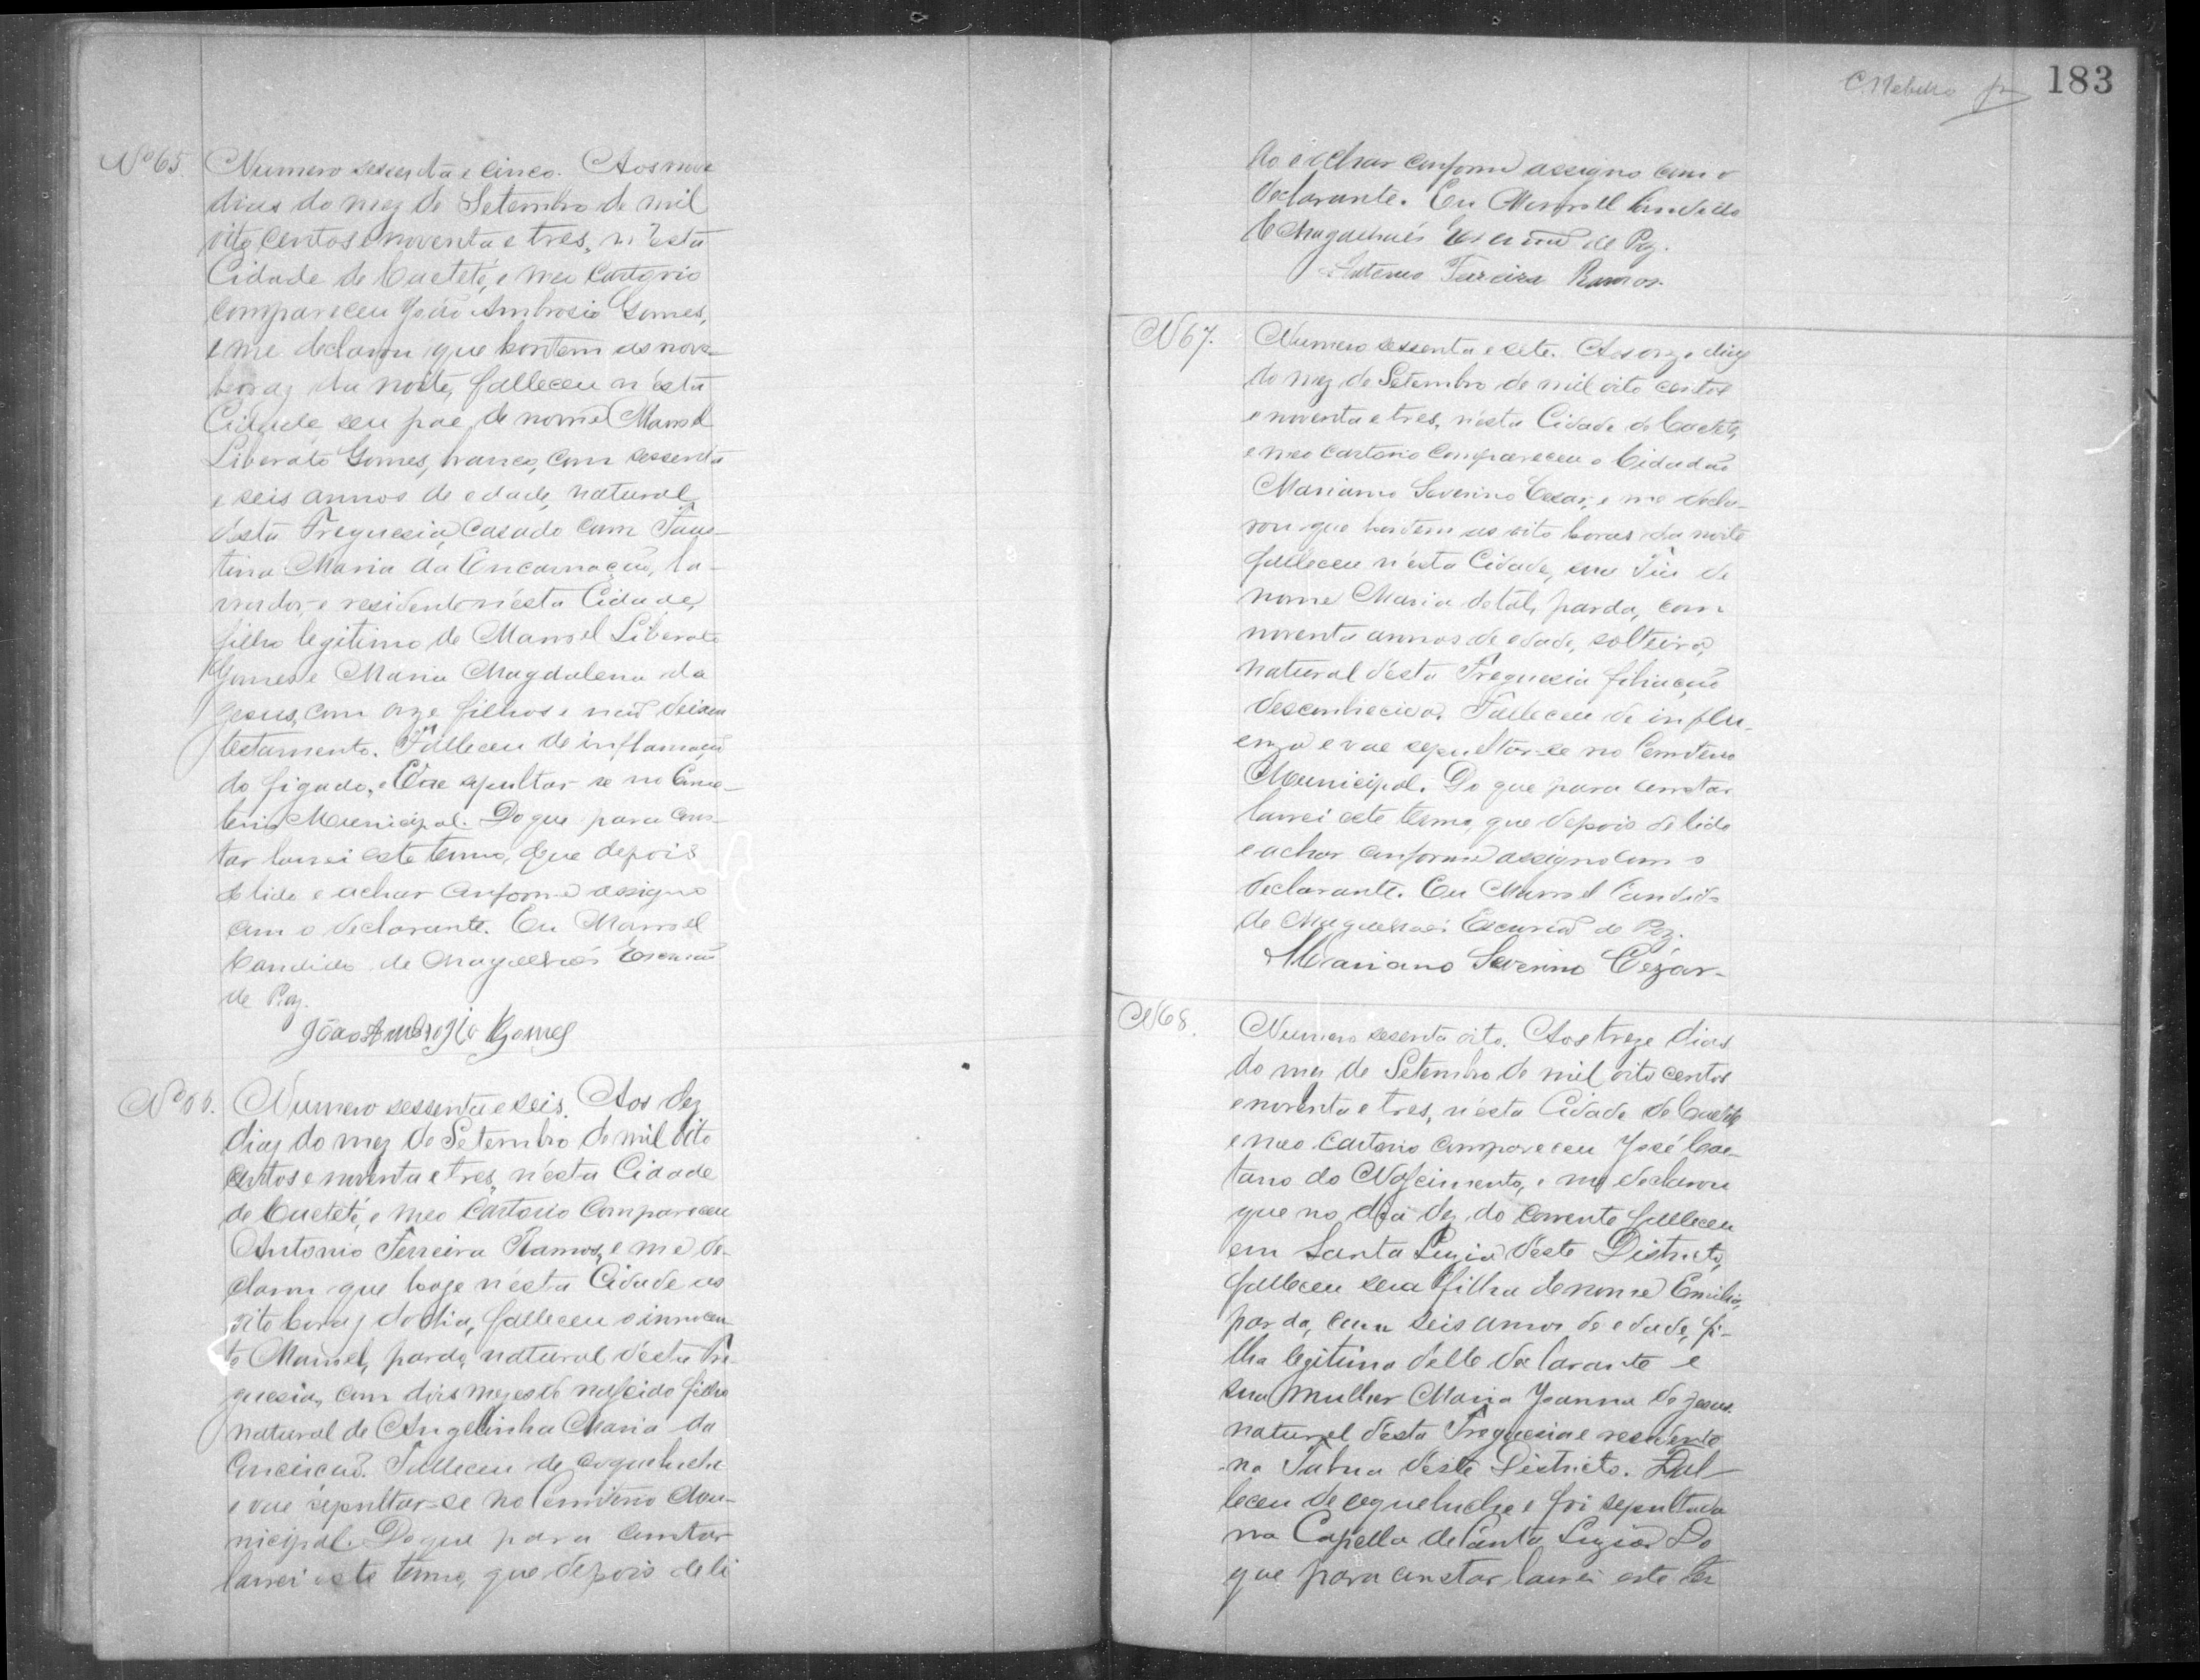 Nº 65.
Numero sessenta e cinco. Aos nove
dias do mez de Setembro de mil
oito centos e noventa e tres, n'esta
Cidade de Caeteté, e meu Cartorio
compareceu João Ambrosio Gomes,
e me declarou que hontem as nove
horas da noite, falleceu n'esta
Cidade, seu pae de nome Manoel
Liberato Gomes, branco, com sessenta
e seis annos de edade, natural
desta Freguesia, casado com Faus-
tina Maria da Encarnação, la-
vrador, e residente n'esta Cidade,
filho legitimo de Manoel Liberato
Gomes e Maria Magdalena de
Jesus, com onze filhos e não deixou
testamento. Falleceu de inflamação
do figado, e vae sepultar-se no Cimi-
terio Municipal. Do que para cons-
tar lavrei este termo, que depois
de lido e achar conforme assigno
com o declarante. Eu Manoel
Candido de Magalhães Escrivão
de Paz.
João Ambrozio Gomes
Nº 66.
Numero sessenta e seis. Aos dez
dias do mez de Setembro de mil oito
centos e noventa e tres, n'esta Cidade
de Caeteté, e meo Cartorio compareceu
Antonio Ferreira Ramos, e me de-
clarou que hoje n'esta Cidade as
oito horas do dia, falleceu o innocen-
te Manoel, pardo, natural d'esta Fre-
guesia, com dois mezes de nascido filho
natural de Angelinha Maria da
Conceição. Falleceu de coqueluche
e vae sepultar-se no Cemiterio Mu-
nicipal. Do que para constar
lavrei este termo, que depois de li
C. Rebello
183
do e achar conforme assigno com o
declarante. Eu Manoel Candido
de Magalhães Escrivão de Paz.
Antonio Ferreira Ramos.
N 67.
Numero sessenta e sete. Aos onze dias
do mez de Setembro de mil oito centos
e noventa e tres, n'esta Cidade de Caeteté,
e meo Cartorio compareceu o Cidadão
Marianno Severino Cesar, e me decla-
rou que hontem as oito horas da noite
falleceu n'esta Cidade, sua Tia de
nome Maria de tal, parda, com
noventa annos de edade, solteira,
natural d'esta Freguesia filiação
desconhecida. Falleceu de influ-
enza e vae sepultar-se no Cemiterio
Municipal. Do que para constar
lavrei este termo, que depois de lido
e achar conforme assigno com o
declarante. Eu Manoel Candido
de Magalhães Escrivão de Paz.
Mariano Severino Cézar-
N 68.
Numero sesenta oito. Aos treze dias
do mez de Setembro de mil oito centos
e noventa e tres, n'esta Cidade de Caeteté
e meo Cartorio compareceu José Cae-
tano do Nascimento, e me declarou
que no dia dez do corrente falleceu
em Santa Luzia deste Districto,
falleceu sua filha de nome Emilia,
parda, com seis annos de edade, fi-
lha legitima delle declarante e
sua mulher Maria Joanna de Jesus.
natural desta Freguesia e residente
na Tabua deste Districto. Fal-
leceu de coqueluche e foi sepultada
na Capella de Santa Luzia. Do
que para constar lavrei este ter